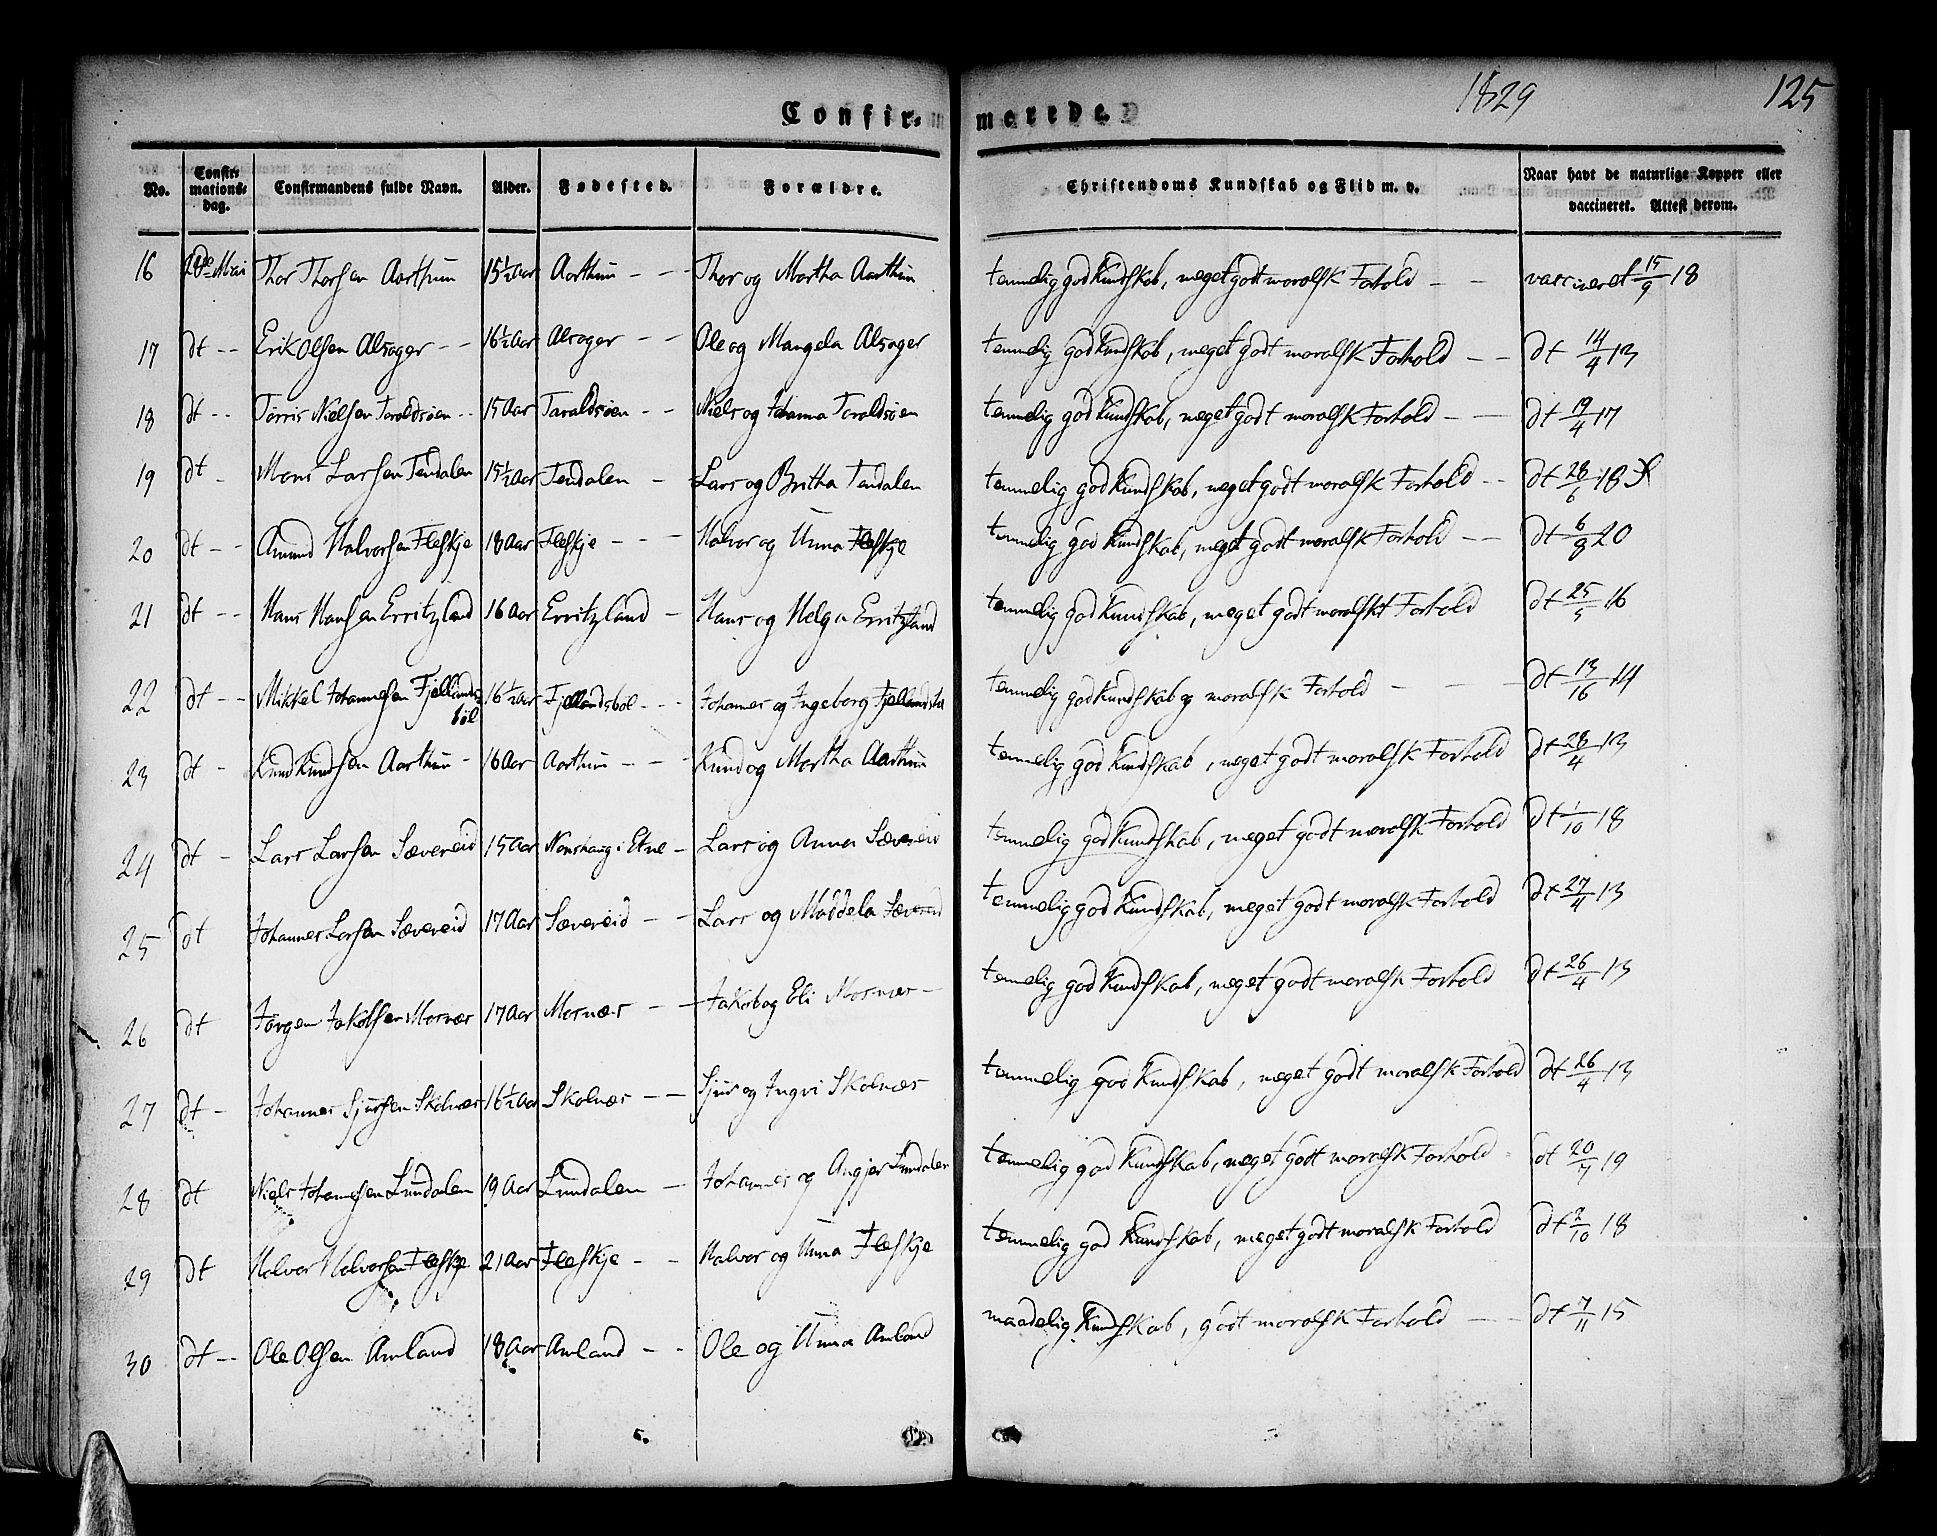 1829 125
Confir- merede.
No. Confirmations-dag. Confirmandens fulde Navn. Alder. Fødested. Forældre. Christendoms Kundskab og Flid m. v. Naar havt de naturlige Kopper eller vaccineret. Attest derom.
16 Mai Thor Thorsen Aarthun 15½ Aar Aarthun - - Thor og Martha Aarthun temmelig god Kundskab, meget godt moralsk Forhold - - vaccineret 15/9 18
17 dt - - Erik Olsen Alsager - - 16½ Aar Alsager - - Ole og Mangela Alsager temmelig god Kundskab, meget godt moralsk Forhold - - dt 14/4 13
18 dt - - Tørris Nielsen Taraldsøen - - 15 Aar Taraldsøen - - Niels og Johanna Taraldsøen temmelig god Kundskab, meget godt moralsk Forhold - - dt 19/4 17
19 dt - Mons Larsen Tendalen 15½ Aar Tendalen - Lars og Britha Tendalen temmelig god Kundskab, meget godt moralsk Forhold - - dt 28/6 18
20 dt - - Amund Halvorsen Fleskje 18 Aar Fleskje - - - Halvor og Unna Fleskje temmelig god Kundskab, meget godt moralsk Forhold - - dt 6/8 20
21 dt - - Hans Hansen Erritzland 16 Aar Erritzland - Hans og Helga Erritzland temmelig god Kundskab, meget godt moralskt Forhold dt 25/5 16
22 dt - - Mikkel Johannesen Fjellands-
bøl 16½ Aar Fjellandsbøl - - - Johannes og Ingeborg Fjellandsbøl temmelig god Kundskab og moralsk Forhold - - - dt 13/16 14
23 dt - Knud Knudsen Aarthun - 16 Aar Aarthun - - - Knud og Martha Aarthun temmelig god Kundskab, meget godt moralsk Forhold dt 28/4 13
24 dt - Lars Larsen Sævereid 15 Aar i Etne - Lars og Anna Sævereid temmelig god Kundskab, meget godt moralsk Forhold dt 1/10 18
25 dt Johannes Larsen Sævereid 17 Aar Sævereid - - Lars og Maddela Sævereid temmelig god Kundskab, meget godt moralsk Forhold dt 27/4 13
26 dt Jørgen Jakobsen Mosnæs 17 Aar Mosnæs - - Jakob og Eli Mosnæs - temmelig god Kundskab, meget godt moralsk Forhold dt 26/4 13
27 dt - Johannes Sjursen Skolnæs 16½ Aar Skolnæs - - Sjur og Ingri Skolnæs temmelig god Kundskab, meget godt moralsk Forhold dt 26/4 13
28 dt Niels Johannesen Lundalen 19 Aar Lundalen - Johannes og Angjer Lundalen temmelig god Kundskab, meget godt moralsk Forhold dt 20/7 19
29 dt Halvor Halvorsen Fleskje 21 Aar Fleskje - - Halvor og Unna Fleskje temmelig god Kundskab, meget godt moralsk Forhold dt 2/10 18
30 dt - - Ole Olsen Amland 18 Aar Amland - - Ole og Unna Amland maadelig Kundskab, godt moralsk Forhold - - dt 7/11 15